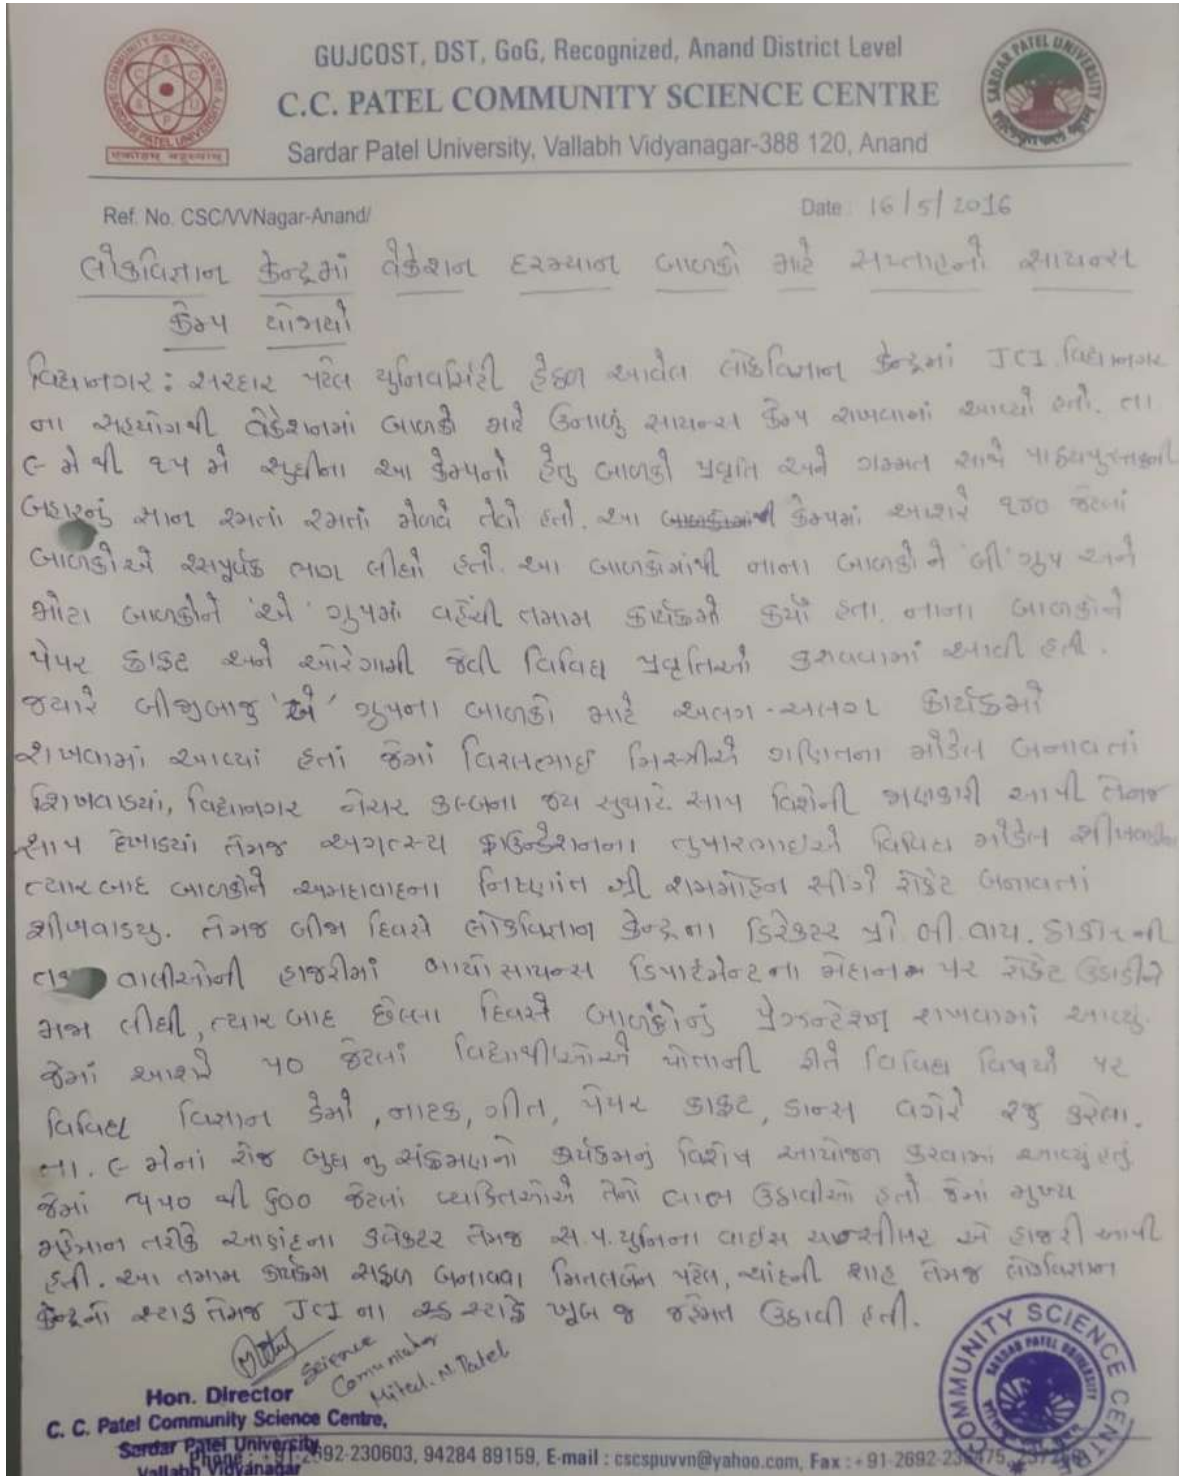 GUJCOST, DST, GoG, Recognized, Anand District Level
C.C. PATEL COMMUNITY SCIENCE CENTRE
Sardar Patel University, Vallabh Vidyanagar-388 120, Anand
Ref. No. CSC/VVNagar-Anand/
Date : 16/5/2016
લોકવિજ્ઞાન કેન્દ્રમાં વેકેશન દરમ્યાન બાળકો માટે સપ્તાહનો સાયન્સ
કેમ્પ યોજાયો
વિદ્યાનગર : સરદાર પટેલ યુનિવર્સિટી હેઠળ આવેલ લોકવિજ્ઞાન કેન્દ્રમાં JCI વિદ્યાનગર
ના સહયોગથી વેકેશનમાં બાળકો માટે ઉનાળુ સાયન્સ કેમ્પ રાખવામાં આવ્યો હતો. તા
૯ મે થી ૧૫ મે સુધીના આ કેમ્પનો હેતુ બાળકો પ્રવૃતિ અને ગમ્મત સાથે પાઠયપુસ્તકની
બહારનું જ્ઞાન રમતાં રમતાં મેળવે તેવો હતો. આ કેમ્પમાં આશરે ૧૩૦ જેટલાં
બાળકોએ રસપૂર્વક ભાગ લીધો હતો. આ બાળકોમાંથી નાના બાળકોને 'બી' ગ્રુપ અને
મોટા બાળકોને 'એ' ગ્રુપમાં વહેંચી તમામ કાર્યક્રમો કર્યાં હતા. નાના બાળકોને
પેપર ક્રાફ્ટ અને ઓરેગામી જેવી વિવિધ પ્રવૃતિઓ કરાવવામાં આવી હતી.
જ્યારે બીજીબાજુ 'એ' ગ્રુપના બાળકો માટે અલગ-અલગ કાર્યક્રમો
રાખવામાં આવ્યાં હતાં જેમાં વિરલભાઇ મિસ્ત્રીએ ગણિતના મોડેલ બનાવતાં
શિખવાડયાં, વિદ્યાનગર નેચર ક્લબના જય સુથારે સાપ વિશેની જાણકારી આપી તેમજ
સાપ દેખાડયાં તેમજ અગત્સ્ય ફાઉન્ડેશનના તુષારભાઇએ વિવિધ મોડેલ
ત્યારબાદ બાળકોને અમદાવાદના નિષ્ણાંત શ્રી રામમોહન સીંગે રોકેટ બનાવતાં
શીખવાડયુ. તેમજ બીજા દિવસે લોકવિજ્ઞાન કેન્દ્રના ડિરેક્ટર પ્રો બી.વાય. ઠાકોરની
વાલીઓની હાજરીમાં બાયોસાયન્સ ડિપાર્ટમેન્ટના મેદાન પર રોકેટ ઉડાડીને
મજા લીધી, ત્યાર બાદ છેલ્લા દિવસે બાળકોનું પ્રેઝન્ટેશન રાખવામાં આવ્યુ.
જેમાં આશરે ૫૦ જેટલાં વિદ્યાર્થીઓએ પોતાની રીતે વિવિધ વિષયો પર
વિવિધ વિજ્ઞાન ડેમો, નાટક, ગીત, પેપર ક્રાફ્ટ, ડાન્સ વગેરે રજુ કરેલા.
તા. ૯ મેનાં રોજ બુધ નુ સંક્રમણનો કાર્યક્રમનું વિશેષ આયોજન કરવામાં આવ્યું હતું
જેમાં ૫૫૦ થી ૬૦૦ જેટલાં વ્યક્તિઓએ તેનો લાભ ઉઠાવીઓ હતો જેમાં મુખ્ય
મહેમાન તરીકે આણંદના કલેક્ટર તેમજ સ.પ.યુનિના વાઇસ ચાન્સીલર એ હાજરી આપી
હતી. આ તમામ કાર્યક્રમ સફળ બનાવવા મિતલબેન પટેલ, ચાંદની શાહ તેમજ લોકવિજ્ઞાન
કેન્દ્રનો સ્ટાફ તેમજ JCI ના સ્ટાફે ખૂબ જ જહેમત ઉઠાવી હતી.
Science
Comunicator
Mital. N. Patel
Hon. Director
C. C. Patel Community Science Centre,
Sardar Patel University
Vallabh Vidyanagar
Phone : +91-2692-230603, 94284 89159, E-mail : cscspuvvn@yahoo.com, Fax : +91-2692-
COMMUNITY SCIENCE CENTRE
SARDAR PATEL UNIVERSITY